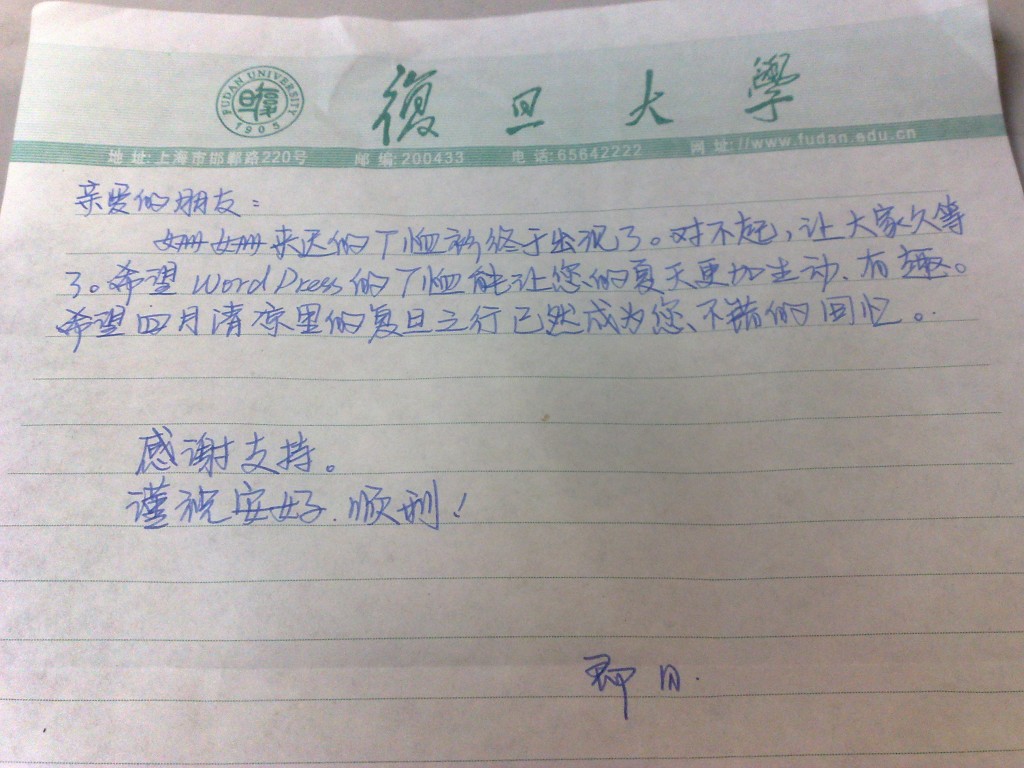 FUDAN UNIVERSITY
1905
復旦大學
地址:上海市邯郸路220号 邮编:200433 电话:65642222 网址://www.fudan.edu.cn
亲爱的朋友：
姗姗来迟的T恤衫终于出现了。对不起，让大家久等
了。希望WordPress的T恤能让您的夏天更加生动、有趣。
希望四月清凉里的复旦之行已然成为您、不错的回忆。
感谢支持。
谨祝安好、顺利！
即日.